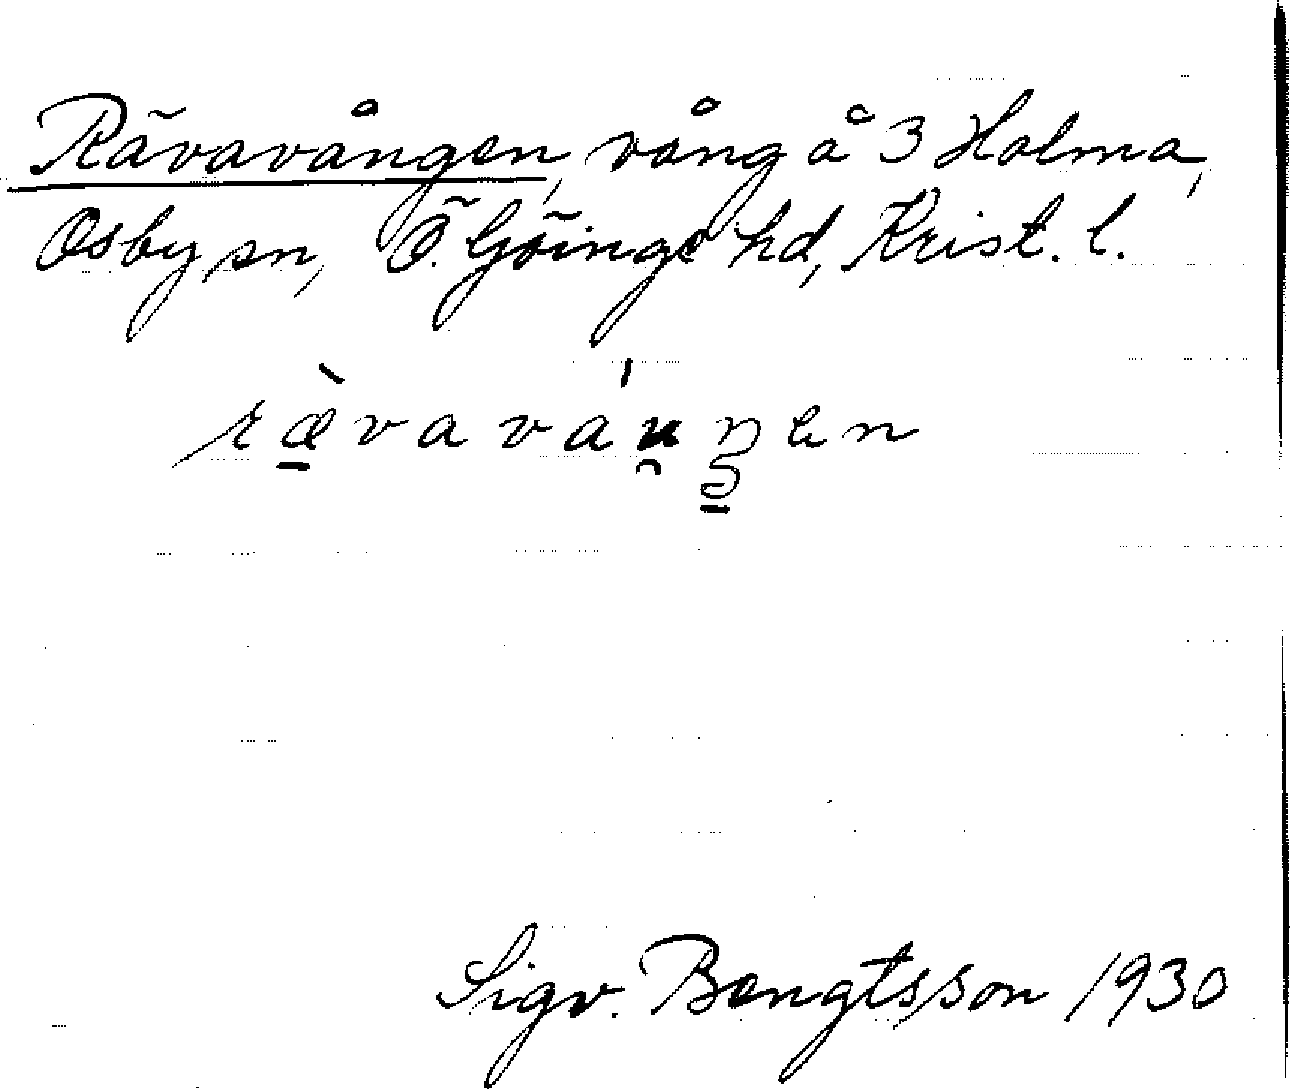 Rävavången, vång å 3 Holma,
Osby sn, Ö. Göinge hd, Krist. l.
ræ̀vaváu̯ŋen
Sigv. Bengtsson 1930